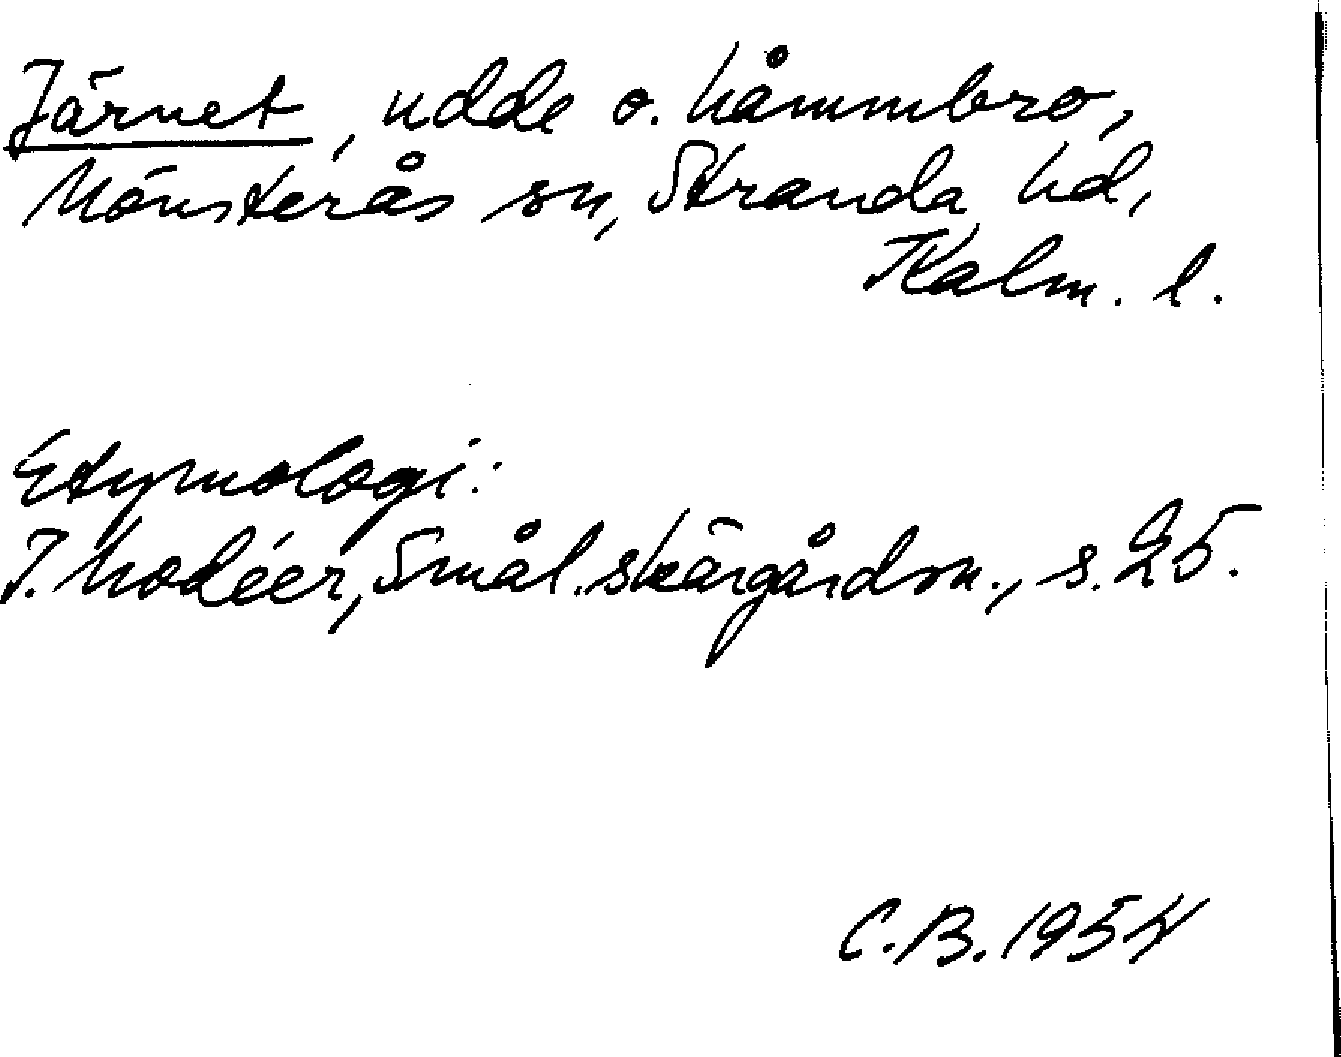 Järnet, udde o. hammbro,
Mönsterås sn, Stranda hd,
Kalm. l.
Etymologi:
I. Modéer, Smål. skärgårdsn., s. 25.
C.B. 1954